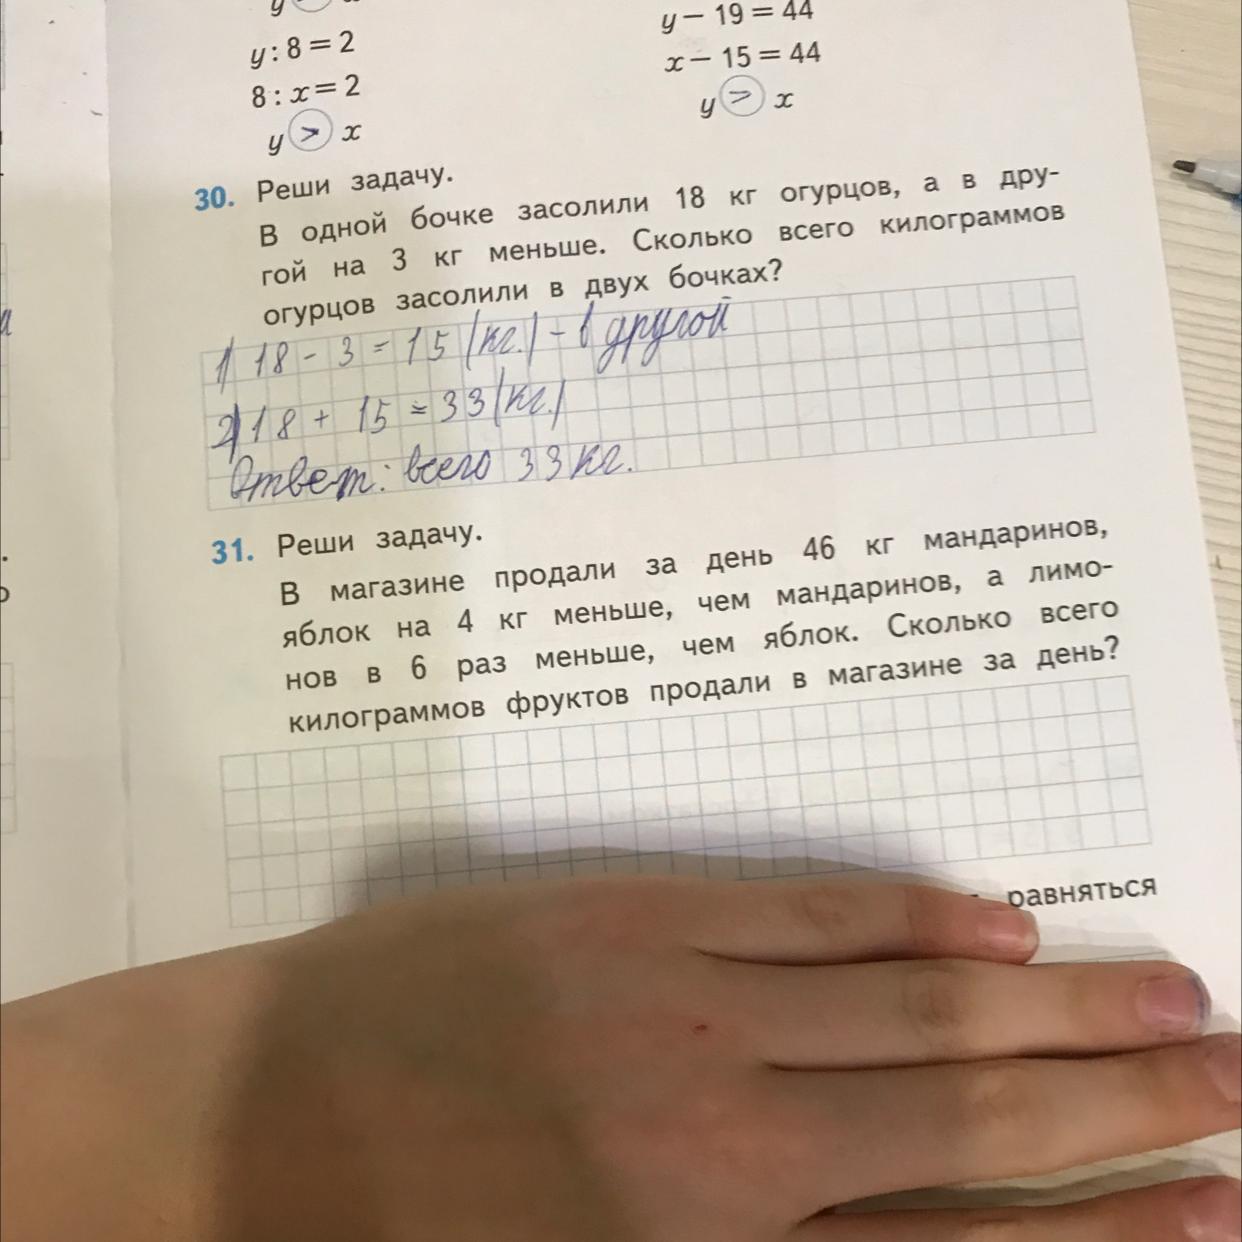 y
y : 8 = 2
8 : x = 2
y > x
y − 19 = 44
x − 15 = 44
y > x
30. Реши задачу.
В одной бочке засолили 18 кг огурцов, а в дру-
гой на 3 кг меньше. Сколько всего килограммов
огурцов засолили в двух бочках?
1) 18 - 3 = 15 (кг.) - в другой
2) 18 + 15 = 33 (кг.)
Ответ: всего 33 кг.
31. Реши задачу.
В магазине продали за день 46 кг мандаринов,
яблок на 4 кг меньше, чем мандаринов, а лимо-
нов в 6 раз меньше, чем яблок. Сколько всего
килограммов фруктов продали в магазине за день?
равняться